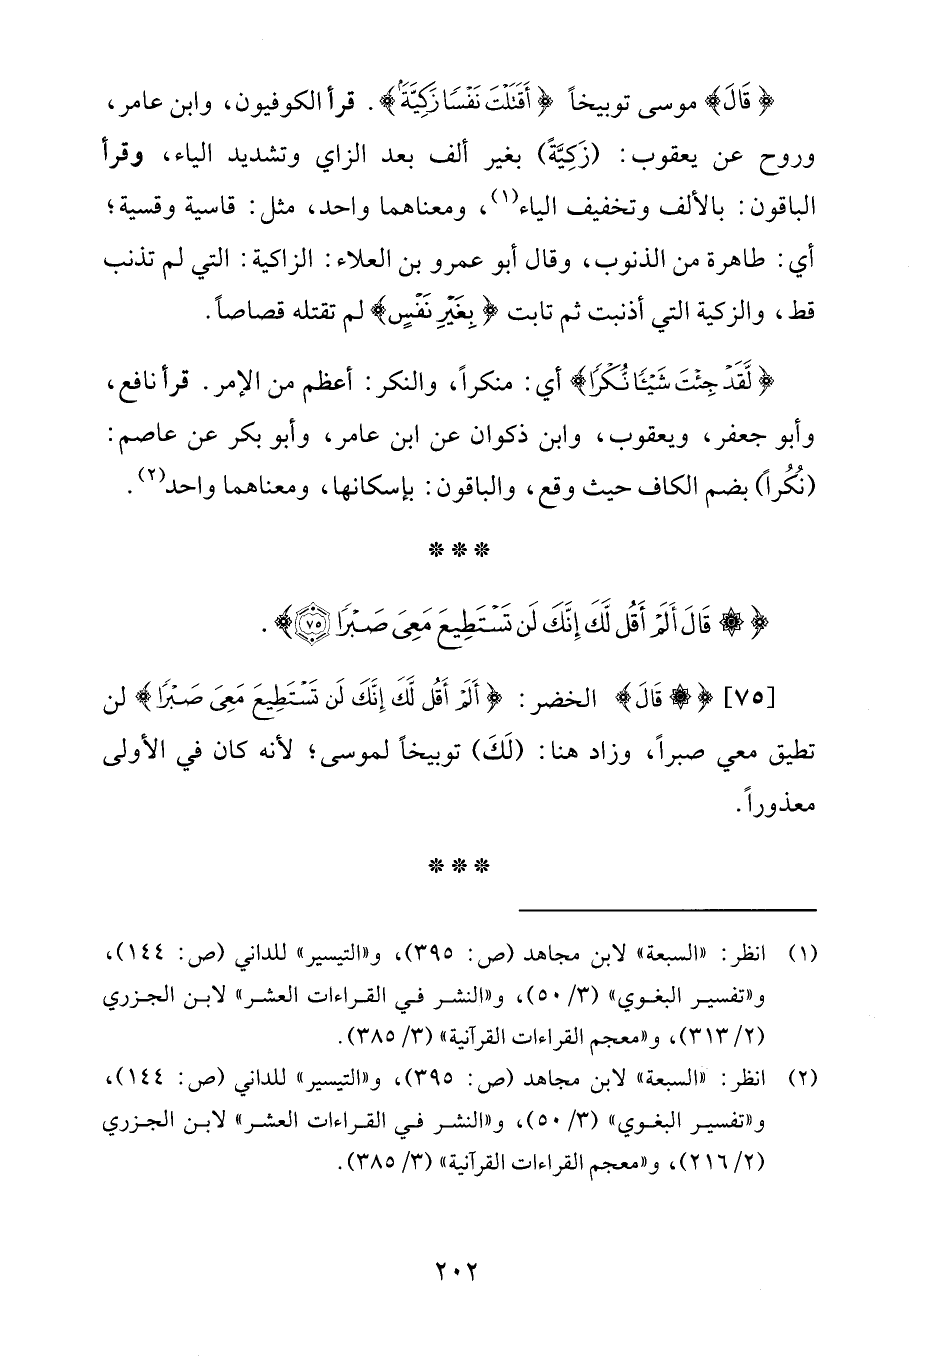 ﴿قَالَ﴾ موسى توبيخاً ﴿أَقَتَلْتَ نَفْسًا زَكِيَّةً﴾. قرأ الكوفيون، وابن عامر،
وروح عن يعقوب: (زَكِيَّةً) بغير ألف بعد الزاي وتشديد الياء، وقرأ
الباقون: بالألف وتخفيف الياء(١)، ومعناهما واحد، مثل: قاسية وقسية؛
أي: طاهرة من الذنوب، وقال أبو عمرو بن العلاء: الزاكية: التي لم تذنب
قط، والزكية التي أذنبت ثم تابت ﴿بِغَيْرِ نَفْسٍ﴾ لم تقتله قصاصاً.
﴿لَّقَدْ جِئْتَ شَيْئًا نُّكْرًا﴾ أي: منكراً، والنكر: أعظم من الإمر. قرأ نافع،
وأبو جعفر، ويعقوب، وابن ذكوان عن ابن عامر، وأبو بكر عن عاصم:
(نُكُراً) بضم الكاف حيث وقع، والباقون: بإسكانها، ومعناهما واحد(٢).
* * *
﴿۞ قَالَ أَلَمْ أَقُل لَّكَ إِنَّكَ لَن تَسْتَطِيعَ مَعِيَ صَبْرًا ٧٥﴾.
[٧٥] ﴿۞ قَالَ﴾ الخضر: ﴿أَلَمْ أَقُل لَّكَ إِنَّكَ لَن تَسْتَطِيعَ مَعِيَ صَبْرًا﴾ لن
تطيق معي صبراً، وزاد هنا: (لَكَ) توبيخاً لموسى؛ لأنه كان في الأولى
معذوراً.
* * *
(١) انظر: «السبعة» لابن مجاهد (ص: ٣٩٥)، و«التيسير» للداني (ص: ١٤٤)،
و«تفسير البغوي» (٣/ ٥٠)، و«النشر في القراءات العشر» لابن الجزري
(٢/ ٣١٣)، و«معجم القراءات القرآنية» (٣/ ٣٨٥).
(٢) انظر: «السبعة» لابن مجاهد (ص: ٣٩٥)، و«التيسير» للداني (ص: ١٤٤)،
و«تفسير البغوي» (٣/ ٥٠)، و«النشر في القراءات العشر» لابن الجزري
(٢/ ٢١٦)، و«معجم القراءات القرآنية» (٣/ ٣٨٥).
٢٠٢